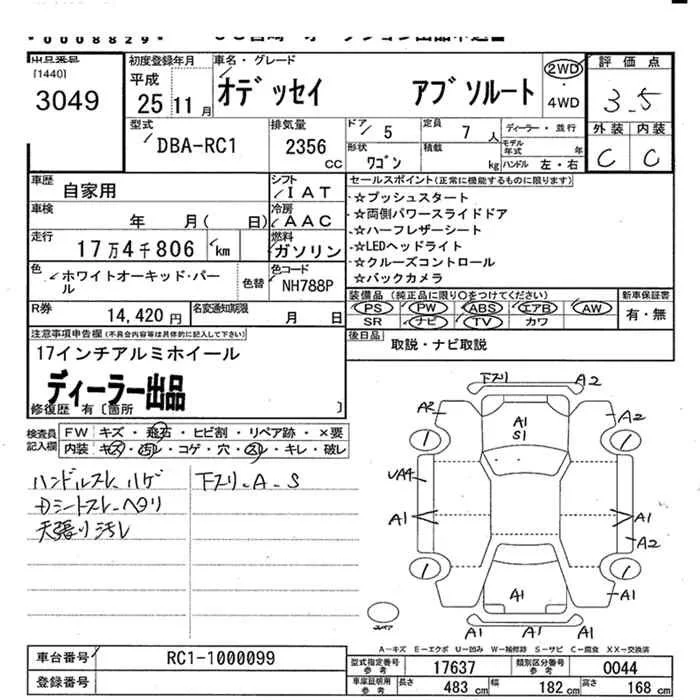 *0008829*
[1440]
3049
初度登録年月
平成
25年11月
車名・グレード
オデッセイ アブソルート
2WD
・
4WD
評価点
3.5
外装 内装
C C
型式
DBA-RC1
排気量
2356
CC
ドア
5
定員
7人
ディーラー・並行
形状
ワゴン
積載
kg
モデル年式
年
ハンドル 左・右
車歴
自家用
シフト
IAT
車検
年 月( 日)
冷房
AAC
走行
17万4千806 km
燃料
ガソリン
色
ホワイトオーキッド・パール
色替
色コード
NH788P
R券
14,420円
名変通知期限
月 日
セールスポイント(正常に機能するものに限ります)
☆プッシュスタート
☆両側パワースライドドア
☆ハーフレザーシート
☆LEDヘッドライト
☆クルーズコントロール
☆バックカメラ
装備品(純正品に限り○をつけてください)
PS PW ABS エアB AW
SR ナビ TV カワ
新車保証書
有・無
後日品
取説・ナビ取説
注意事項申告欄(不具合内容等は具体的に記入して下さい)
17インチアルミホイール
ディーラー出品
修復歴 有〔箇所 〕
検査員記入欄
FW キズ・飛石・ヒビ割・リペア跡・×要
内装 キズ・汚レ・コゲ・穴・スレ・キレ・破レ
ハンドルスレ ハゲ
Dシートスレ・ヘタリ
天張り汚レ
下スリ.A.S
下スリ A2
A2 A2
A1
S1
1 1
UA4
A1 A1
A2
1 1
A1
A1 A1 A1
A-キズ E-エクボ U-凹み W-補修跡 S-サビ C-腐食 XX-交換済
車台番号
RC1-1000099
登録番号
型式指定番号
参考
17637
類別区分番号
参考
0044
車庫証明用
参考
長さ
483 cm
幅
182 cm
高さ
168 cm